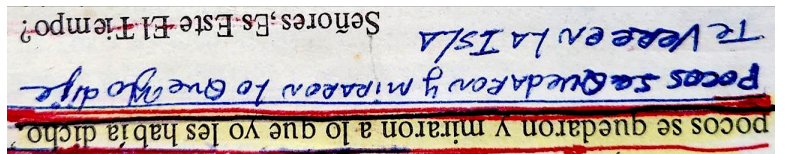 pocos se quedaron y miraron a lo que yo les había dicho,
POCOS SE QUEDARON y MIRARON LO QUE yo dije
TE VERE EN LA ISLA Señores;Es Este El Tiempo?